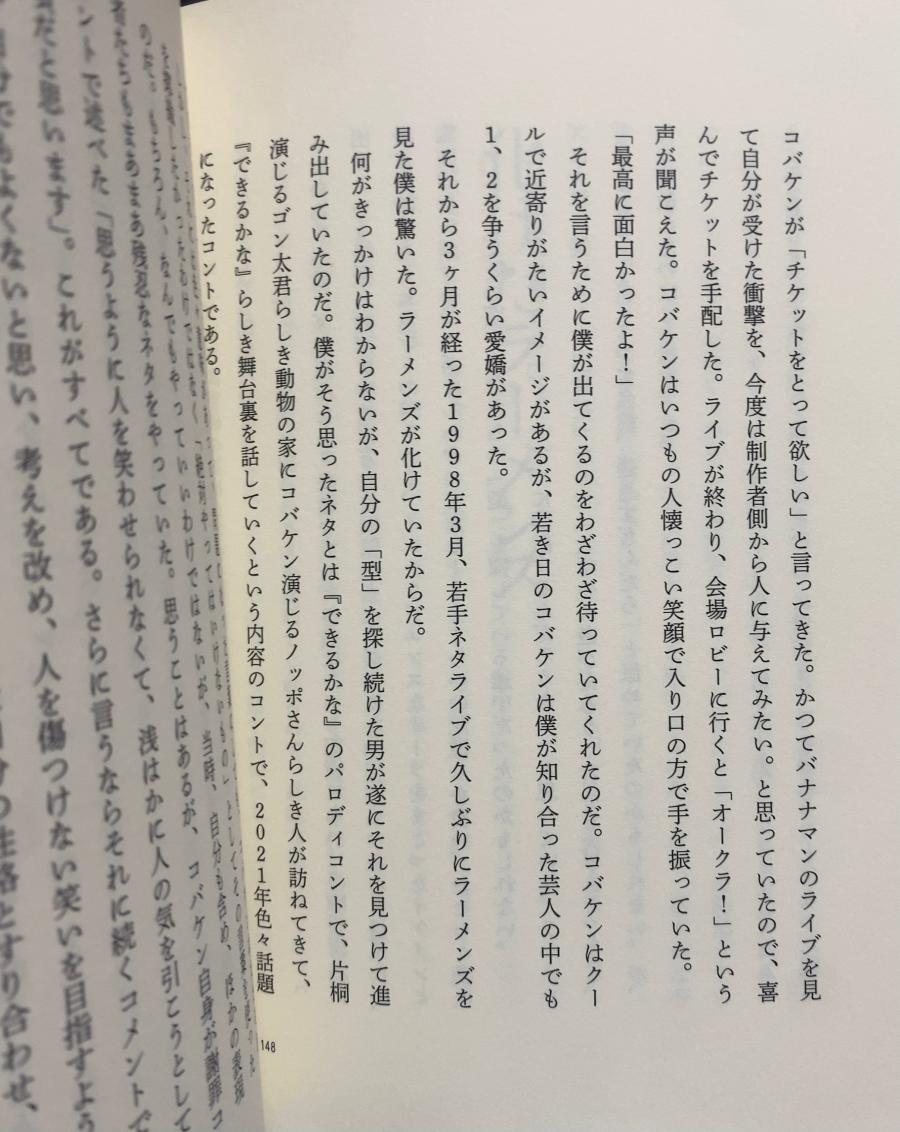 コバケンが「チケットをとって欲しい」と言ってきた。かつてバナナマンのライブを見
て自分が受けた衝撃を、今度は制作者側から人に与えてみたい。と思っていたので、喜
んでチケットを手配した。ライブが終わり、会場ロビーに行くと「オークラ!」という
声が聞こえた。コバケンはいつもの人懐っこい笑顔で入り口の方で手を振っていた。
「最高に面白かったよ!」
それを言うために僕が出てくるのをわざわざ待っていてくれたのだ。コバケンはクー
ルで近寄りがたいイメージがあるが、若き日のコバケンは僕が知り合った芸人の中でも
1、2を争うくらい愛嬌があった。
それから3ヶ月が経った1998年3月、若手ネタライブで久しぶりにラーメンズを
見た僕は驚いた。ラーメンズが化けていたからだ。
何がきっかけはわからないが、自分の「型」を探し続けた男が遂にそれを見つけて進
み出していたのだ。僕がそう思ったネタとは『できるかな』のパロディコントで、片桐
演じるゴン太君らしき動物の家にコバケン演じるノッポさんらしき人が訪ねてきて、
『できるかな』らしき舞台裏を話していくという内容のコントで、2021年色々話題
になったコントである。
148
のだ。もちろん、なんでもやっていいわけではないが、当時、自分も含め、ほかの表現
者たちもまあまあ残忍なネタをやっていた。思うことはあるが、コバケン自身が謝罪コ
ントで述べた「思うように人を笑わせられなくて、浅はかに人の気を引こうとして
だと思います」。これがすべてである。さらに言うならそれに続くコメントで
でもよくないと思い、考えを改め、人を傷つけない笑いを目指すよう